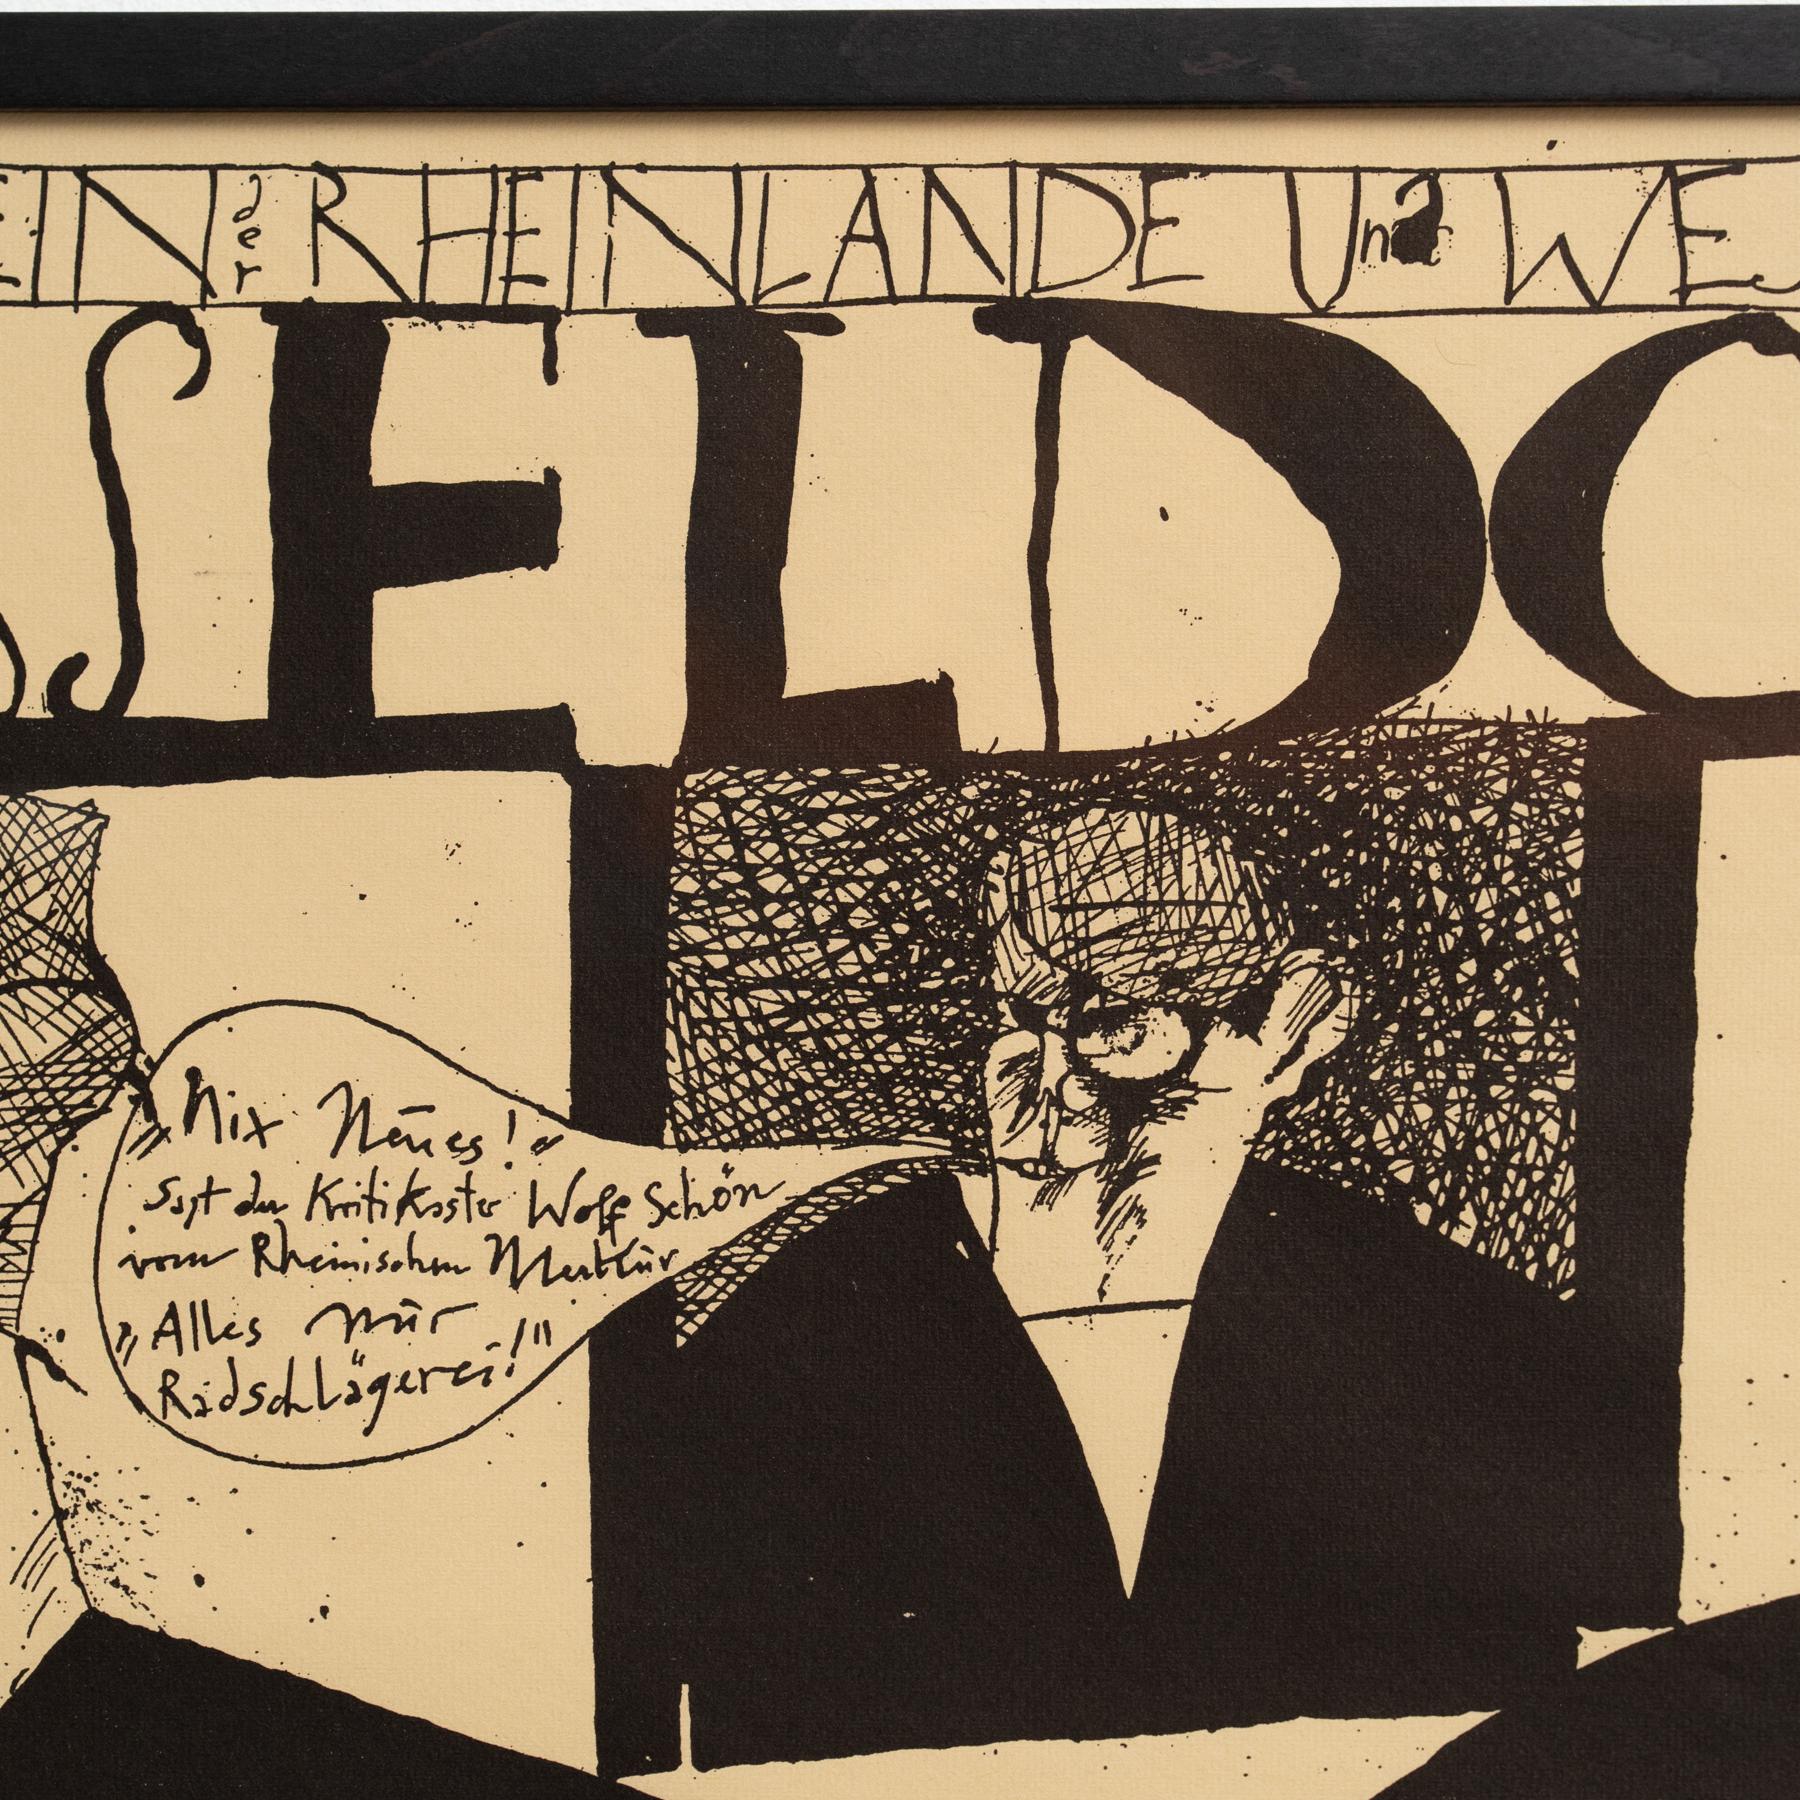 EIN der RHEINLANDE Und WES
SELDO
„Nix Neūes!“
sagt der Kritikaster Wolf Schön
vom Rheinischen Merkūr
„Alles nūr
Radschlägerei!"